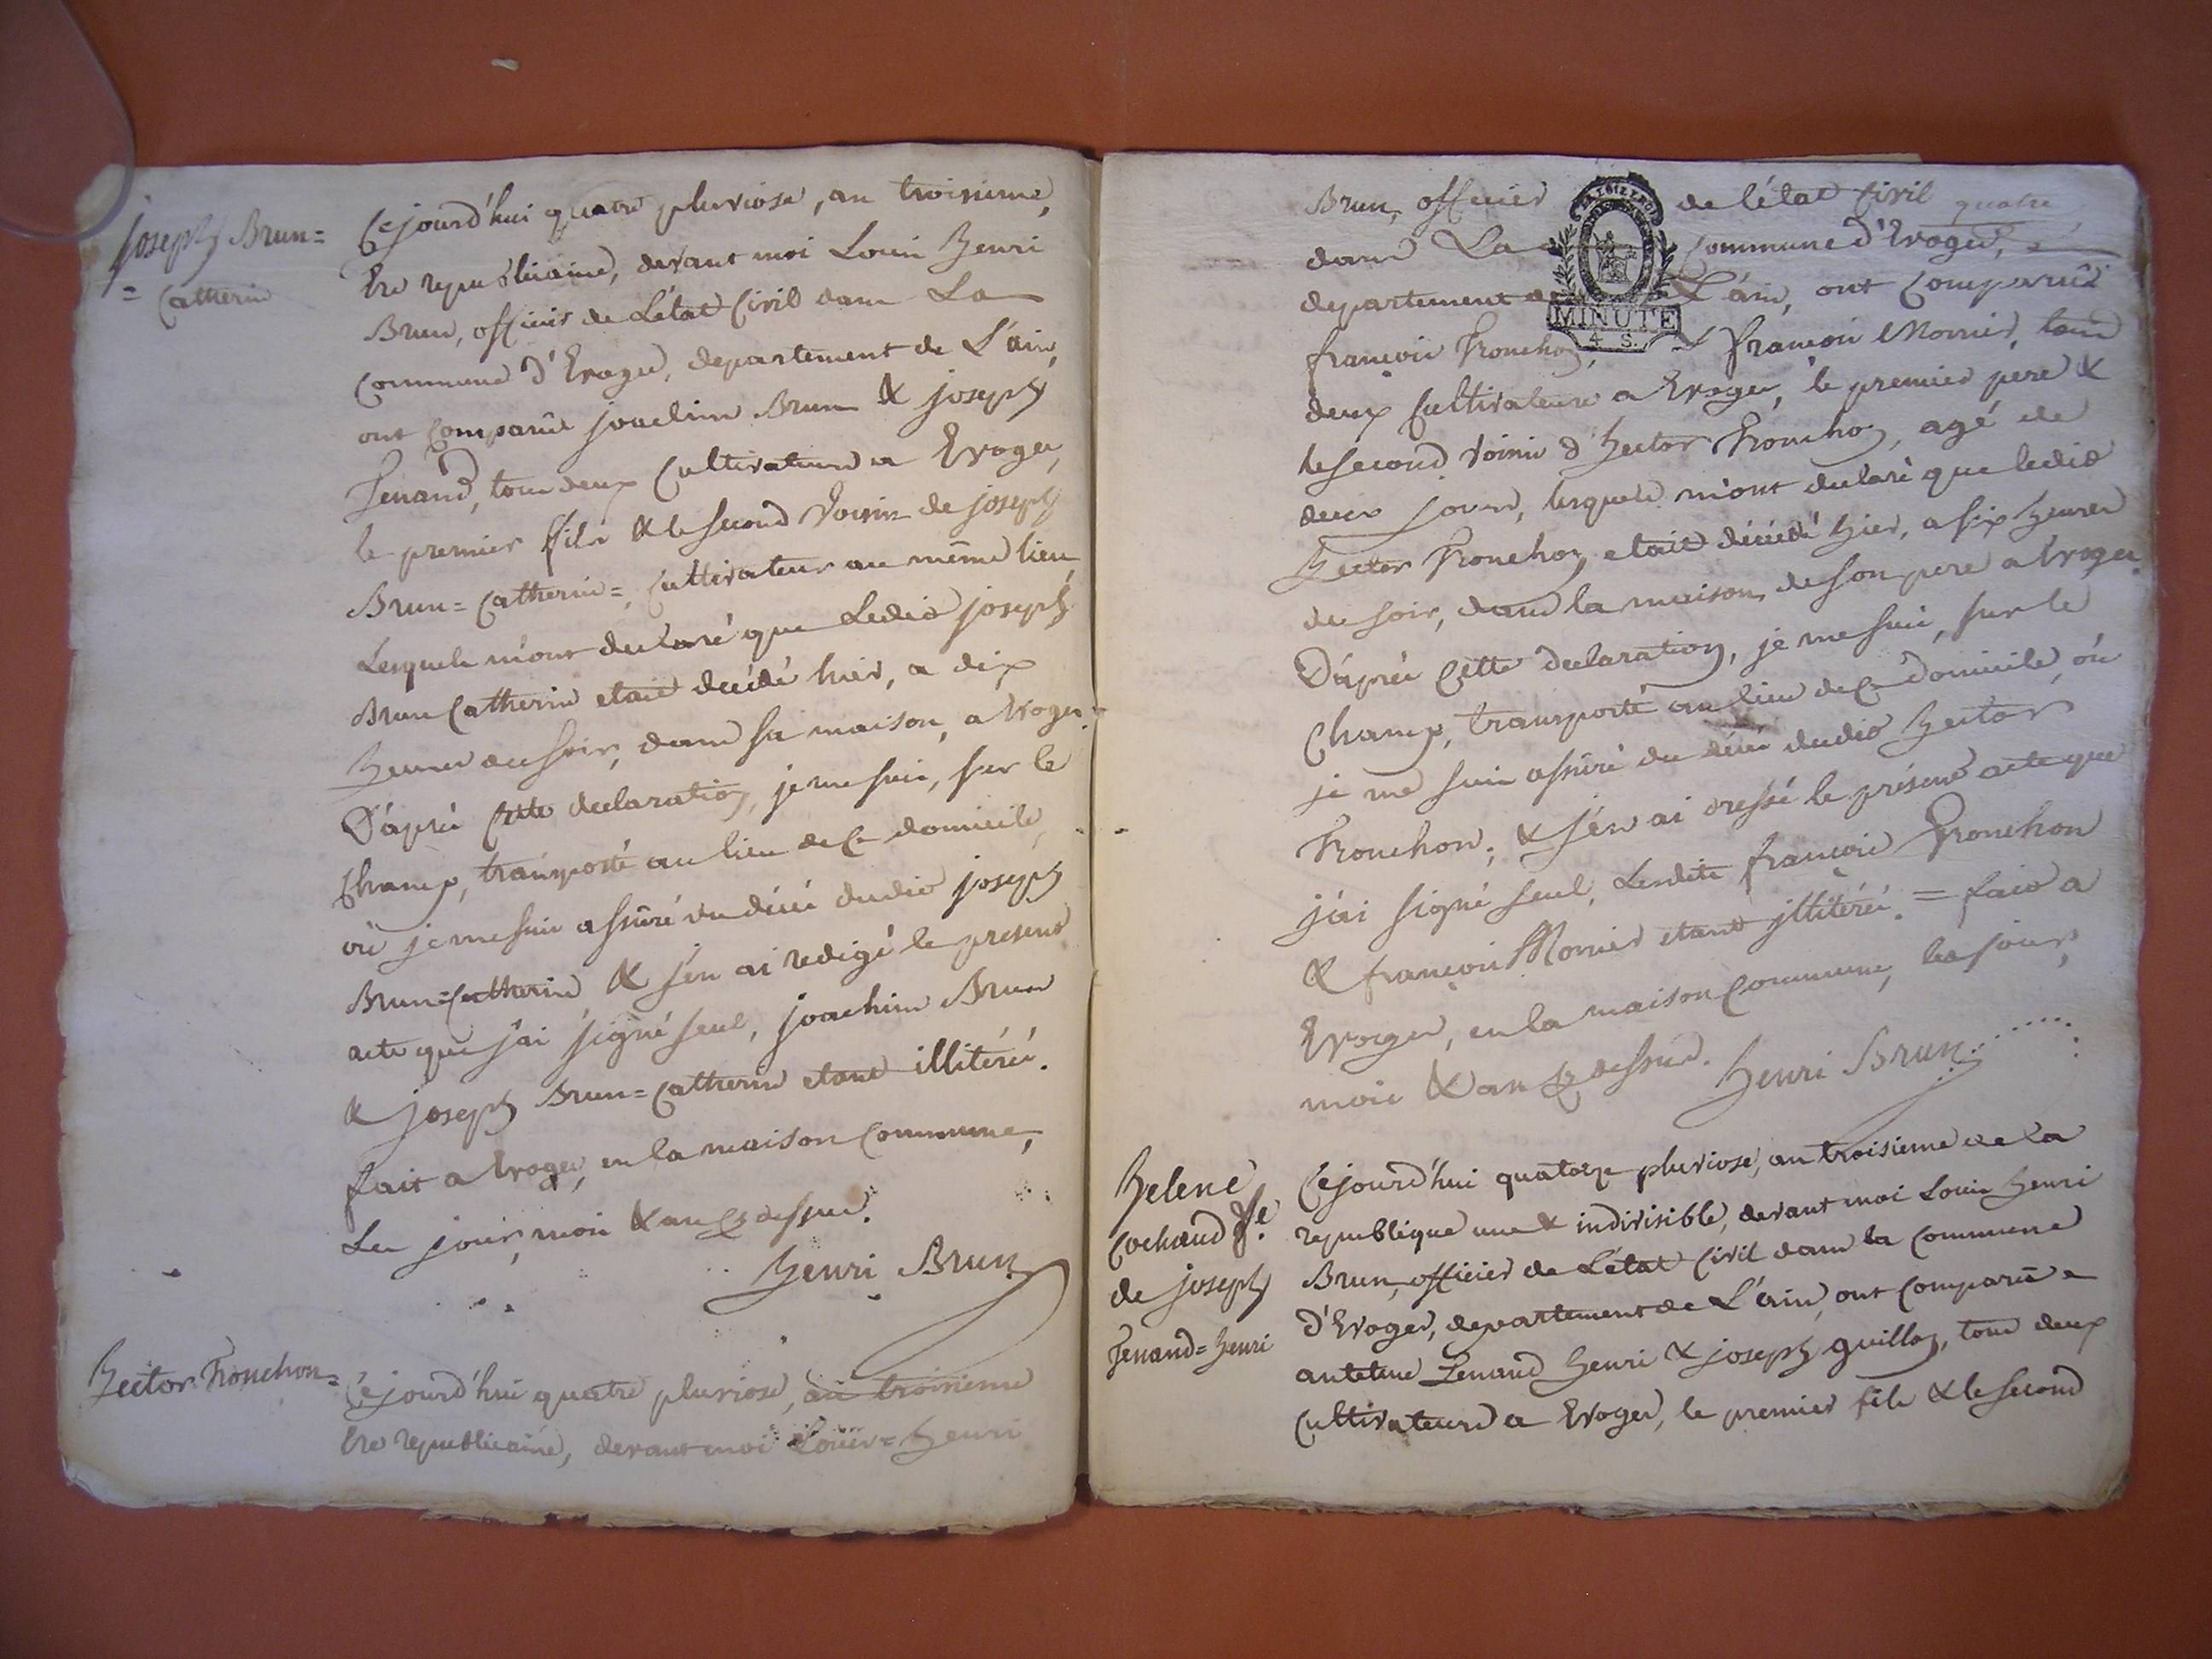 joseph Brun=
= Catherin
Cejourd'hui quatre pluviose, an troisieme,
Ere republicaine, devant moi Louis Henri
Brun, officier de L'état Civil dans La
Commune d'Evoges, departement de L'ain,
ont Comparus joachim Brun & joseph
Tenand, tous deux Cultivateurs a Evoges,
le premier fils & le second Voisin de joseph
Brun=Catherin=, Cultivateur au même lieu
Lesquels m'ont declaré que Ledit joseph
Brun Catherin etait decédé hier, a dix
heures du soir, dans sa maison, a Evoges.
D'après Cette declaration, je me suis, sur le
Champ, transporté au lieu de Ce domicile,
où je me suis assûré du décès dudit joseph
Brun=Catherin, & j'en ai redigé le present
acte que j'ai signé seul, joachim Brun
& joseph Brun=Catherin etant illitérés.
fait a Evoges, en la maison Commune,
Les jour, mois & an Cy dessus.
Henri Brun
Hector Tronchon=
Cejourd'hui quatre pluviose, an troisieme
Ere republicaine, devant moi Louis=Henri
Brun, officier de l'état Civil quatre
dans La Commune d'Evoges,
departement de L'ain, ont Comparus
françois Tronchon, & françois Monier, tous
deux Cultivateurs a Evoges, le premier pere &
le second Voisin d'hector Tronchon, agé de
deux jours, lesquels m'ont declaré que ledit
hector Tronchon etait décédé hier, a six heures
du soir, dans la maison de son pere a Evoges.
D'après Cette declaration, je me suis, sur le
Champ, transporté au lieu de Ce domicile, où
je me suis assûré du décès dudit hector
Tronchon; & j'en ai dressé le présent acte que
j'ai signé seul, Lesdits françois Tronchon
& françois Monier etant jllitérés. = fait a
Evoges, en la maison Commune, les jour,
mois & an Cy dessus. Henri Brun
Helene
Cochaud fe.
de joseph
Tenand=henri
Cejourd'hui quatorze pluviose, an troisieme de la
republique une & indivisible, devant moi Louis henri
Brun, officier de L'état Civil dans la Commune
d'Evoges, departement de L'ain, ont Comparus
antelme Tenand henri & joseph guillon, tous deux
Cultivateurs a Evoges, le premier fils & le second
MINUTE
4 S.